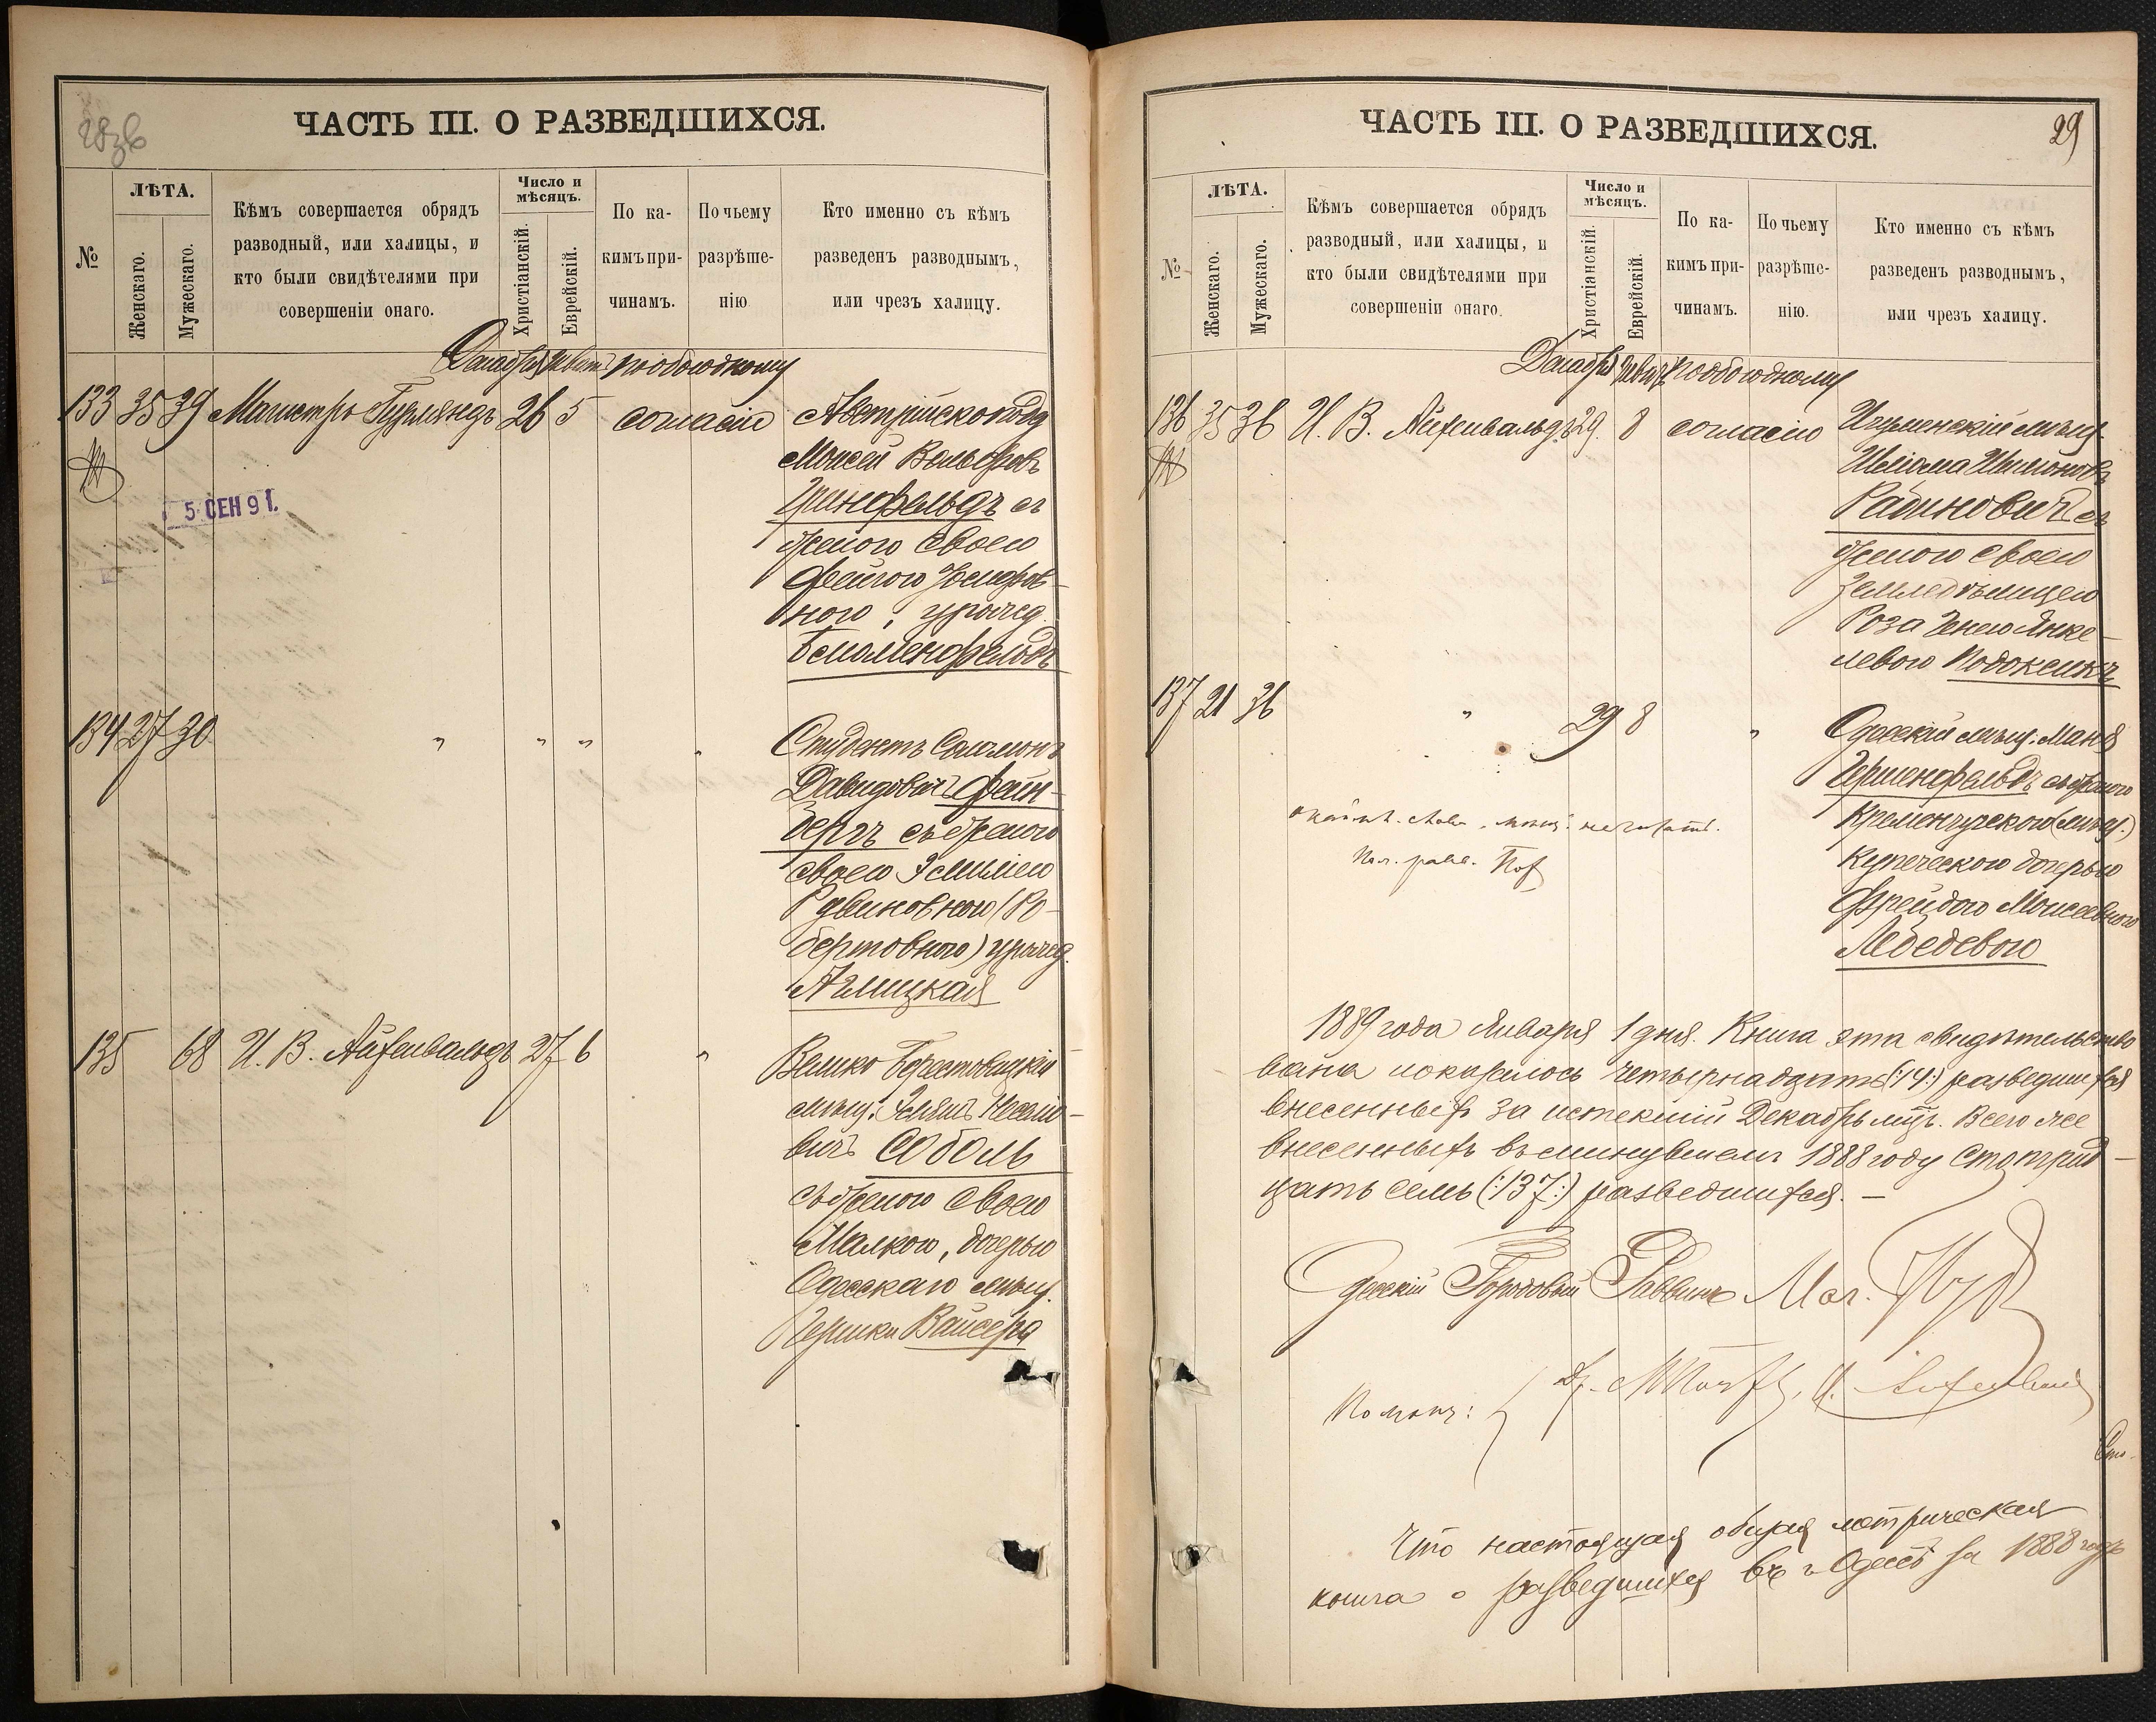 28 об
ЧАСТЬ III. О РАЗВЕДШИХСЯ.
№
ЛѢТА.
Женскаго.
Мужескаго.
Кѣмъ совершается обрядъ
разводный, или халицы, и
кто были свидѣтелями при
совершеніи онаго.
Число и
мѣсяцъ.
Христіанскій.
Еврейскій.
По ка-
кимъ при-
чинамъ.
По чьему
разрѣше-
нію
Кто именно съ кѣмъ
разведенъ разводнымъ,
или чрезъ халицу.
Декабрь Тевитъ по обоюдному
133 35 39 Магистръ Гурляндъ 26 5 согласію Австрійскоподд
Моисей Вольфовъ
Гринфельдъ съ
женою своею
Фейгою Іосифов-
ною, урожд.
Блюменфельдъ
5 СЕН 91.
134 27 30 " " " " Студентъ Соломонъ
Давидовичъ Файн-
бергъ съ женою
своею Эмиліею
Рувиновною (Ро-
бертовною) урожд.
Аглицкая
135 68 И. В. Айхенвальдъ 27 6 " Велико Берестовицкій
мѣщ.
Соболь
съ женою своею
Малкою, дочерью
Одесскаго мѣщ.
Гершки Вайсера
ЧАСТЬ III. О РАЗВЕДШИХСЯ.
29
№
ЛѢТА.
Женскаго.
Мужескаго.
Кѣмъ совершается обрядъ
разводный, или халицы, и
кто были свидѣтелями при
совершеніи онаго.
Число и
мѣсяцъ.
Христіанскій.
Еврейскій.
По ка-
кимъ при-
чинамъ.
По чьему
разрѣше-
нію.
Кто именно съ кѣмъ
разведенъ разводнымъ,
или чрезъ халицу.
Декабрь Тевитъ по обоюдному
136 35 36 И. В. Айхенвальдъ 29. 8 согласію Игуменскій мѣщ.
Шліома Шимоновъ
Рабиновичъ съ
женою своею
Земледѣлицею
Роза Генею Янке-
левою
137 21 36 " 29 8 " Одесскій мѣщ. Маня
Гершенфельдъ съ женою
Кременчугскою (мѣщ.)
купеческою дочерью
Фрейдою Моисеевною
Лебедевою
1889 года Января 1 дня. Книга эта свидѣтельство
вана и оказалось четырнадцать (:14:) разведшихся
внесенныхъ за истекшій Декабрь мцъ. Всего же
внесенныхъ въ минувшемъ 1888 году Сто трид-
цать семь (:137:) разведшихся. —
Одесскій Городовый Раввинъ Маг.
Помощ:
Сто-
Что настоящая общая метрическая
книга о разведшихся въ г. Одессѣ за 1888 годъ